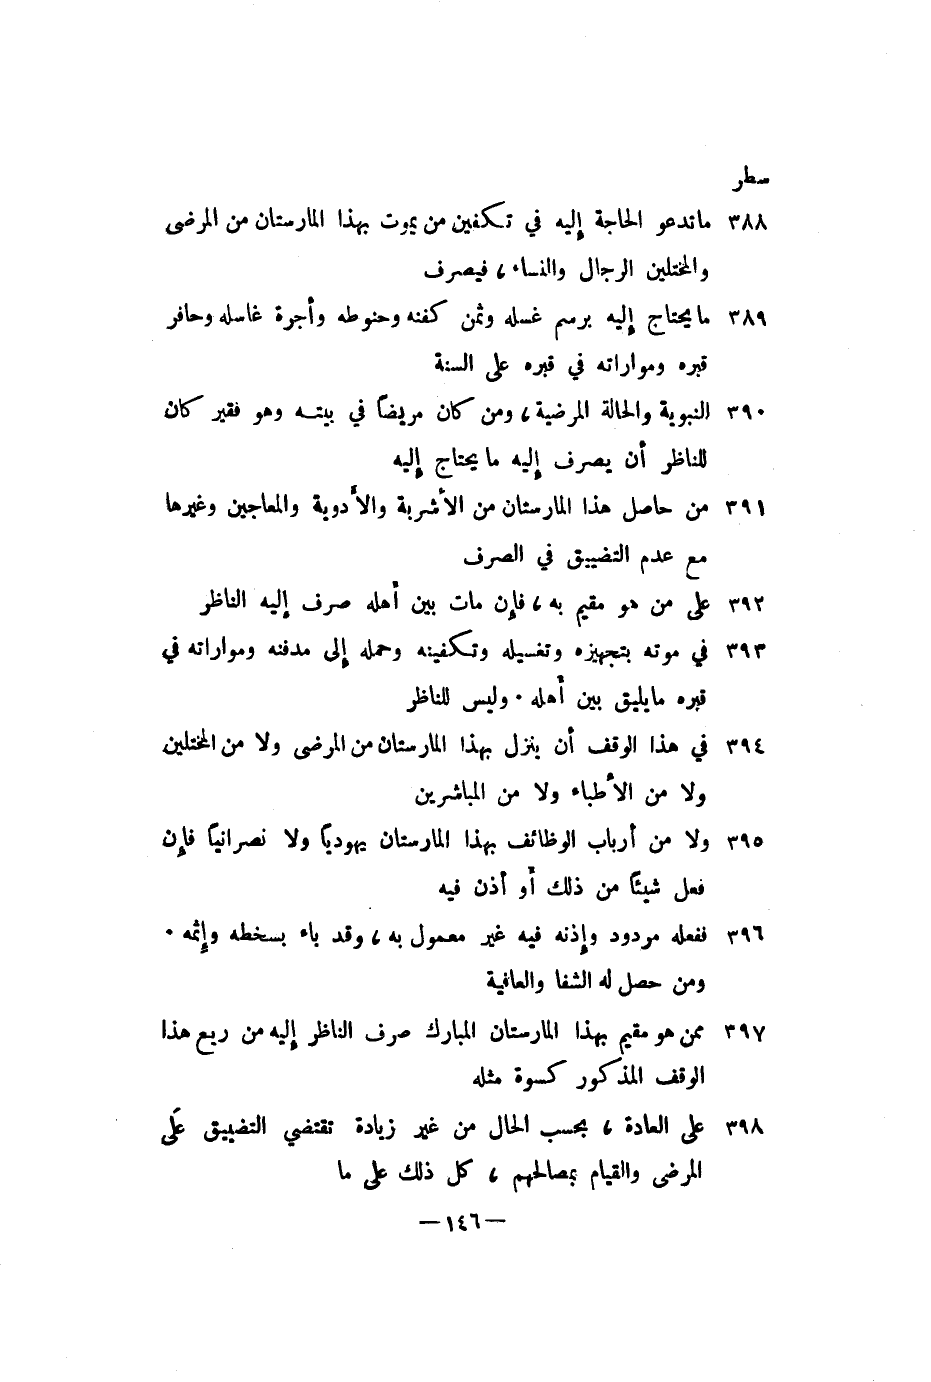 سطر
٣٨٨ ماتدعو الحاجة إليه في تكفين من يموت بهذا المارستان من المرضى
والمختلين الرجال والنساء ، فيصرف
٣٨٩ ما يحتاج إليه برسم غسله وثمن كفنه وحنوطه وأجرة غاسله وحافر
قبره ومواراته في قبره على السنة
٣٩٠ النبوية والحالة المرضية ، ومن كان مريضاً في بيته وهو فقير كان
للناظر أن يصرف إليه ما يحتاج إليه
٣٩١ من حاصل هذا المارستان من الأشربة والأدوية والمعاجين وغيرها
مع عدم التضييق في الصرف
٣٩٢ على من هو مقيم به ، فإن مات بين أهله صرف إليه الناظر
٣٩٣ في موته بتجهيزه وتغسيله وتكفينه وحمله إلى مدفنه ومواراته في
قبره مايليق بين أهله . وليس للناظر
٣٩٤ في هذا الوقف أن ينزل بهذا المارستان من المرضى ولا من المختلين
ولا من الأطباء ولا من المباشرين
٣٩٥ ولا من أرباب الوظائف بهذا المارستان يهودياً ولا نصرانياً فإن
فعل شيئاً من ذلك أو أذن فيه
٣٩٦ ففعله مردود وإذنه فيه غير معمول به ، وقد باء بسخطه وإثمه .
ومن حصل له الشفا والعافية
٣٩٧ ممن هو مقيم بهذا المارستان المبارك صرف الناظر إليه من ريع هذا
الوقف المذكور كسوة مثله
٣٩٨ على العادة ، بحسب الحال من غير زيادة تقتضي التضييق على
المرضى والقيام بمصالحهم ، كل ذلك على ما
— ١٤٦ —